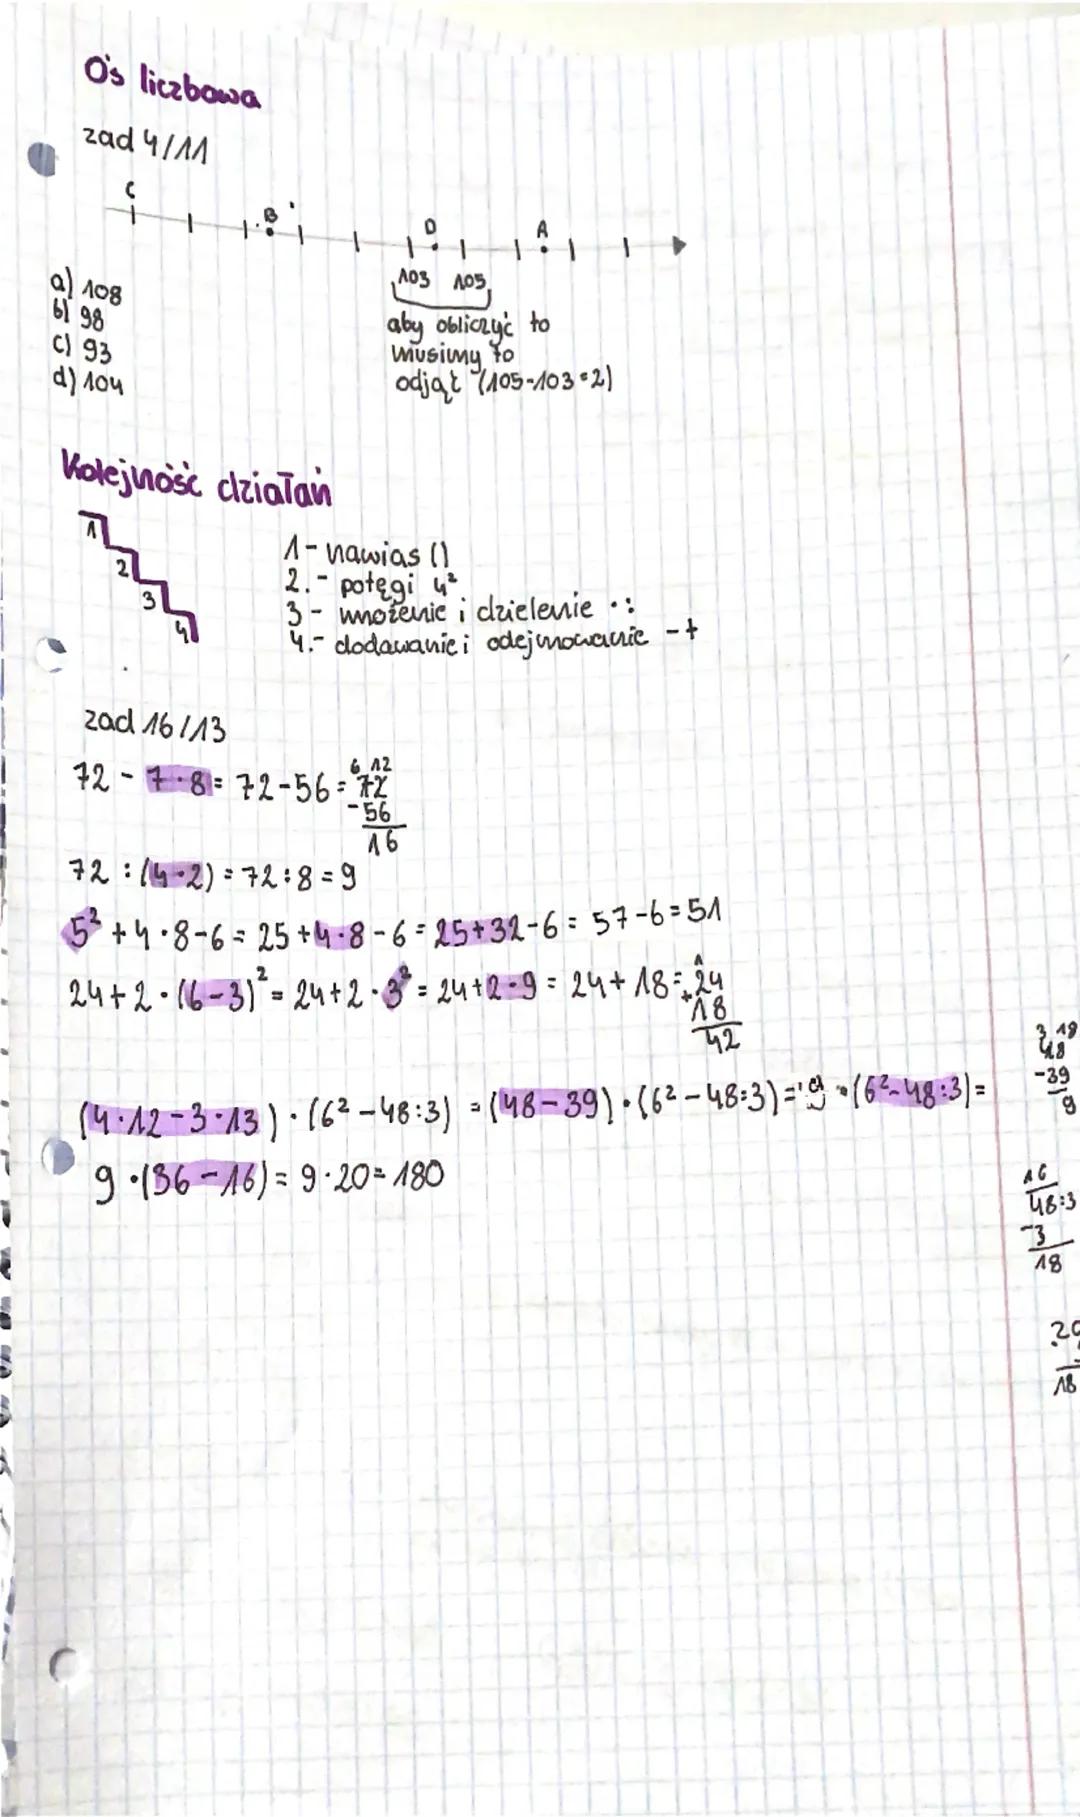 Oś liczbowa
zad 4/11
C B D A
103 105
a) 108
b) 98
c) 93
d) 104
aby obliczyć to
musimy to
odjąć (105-103=2)
Kolejność działań
1 2 3 4
1- nawias ()
2.- potęgi 4²
3- mnożenie i dzielenie · :
4.- dodawanie i odejmowanie - +
zad 16/13
72 - 7·8 = 72-56 = 72
6 12
-56
16
72 : (4·2) = 72:8 = 9
5² + 4·8-6 = 25+4·8-6 = 25+32-6 = 57-6=51
24+2·(6-3)² = 24+2·3² = 24+2·9 = 24+18 = 24
1
+18
42
(4·12-3·13)·(6²-48:3) = (48-39)·(6²-48:3) = 9·(6²-48:3) =
9·(36-16) = 9·20=180
3 18
48
-39
9
16
48:3
-3
18
18